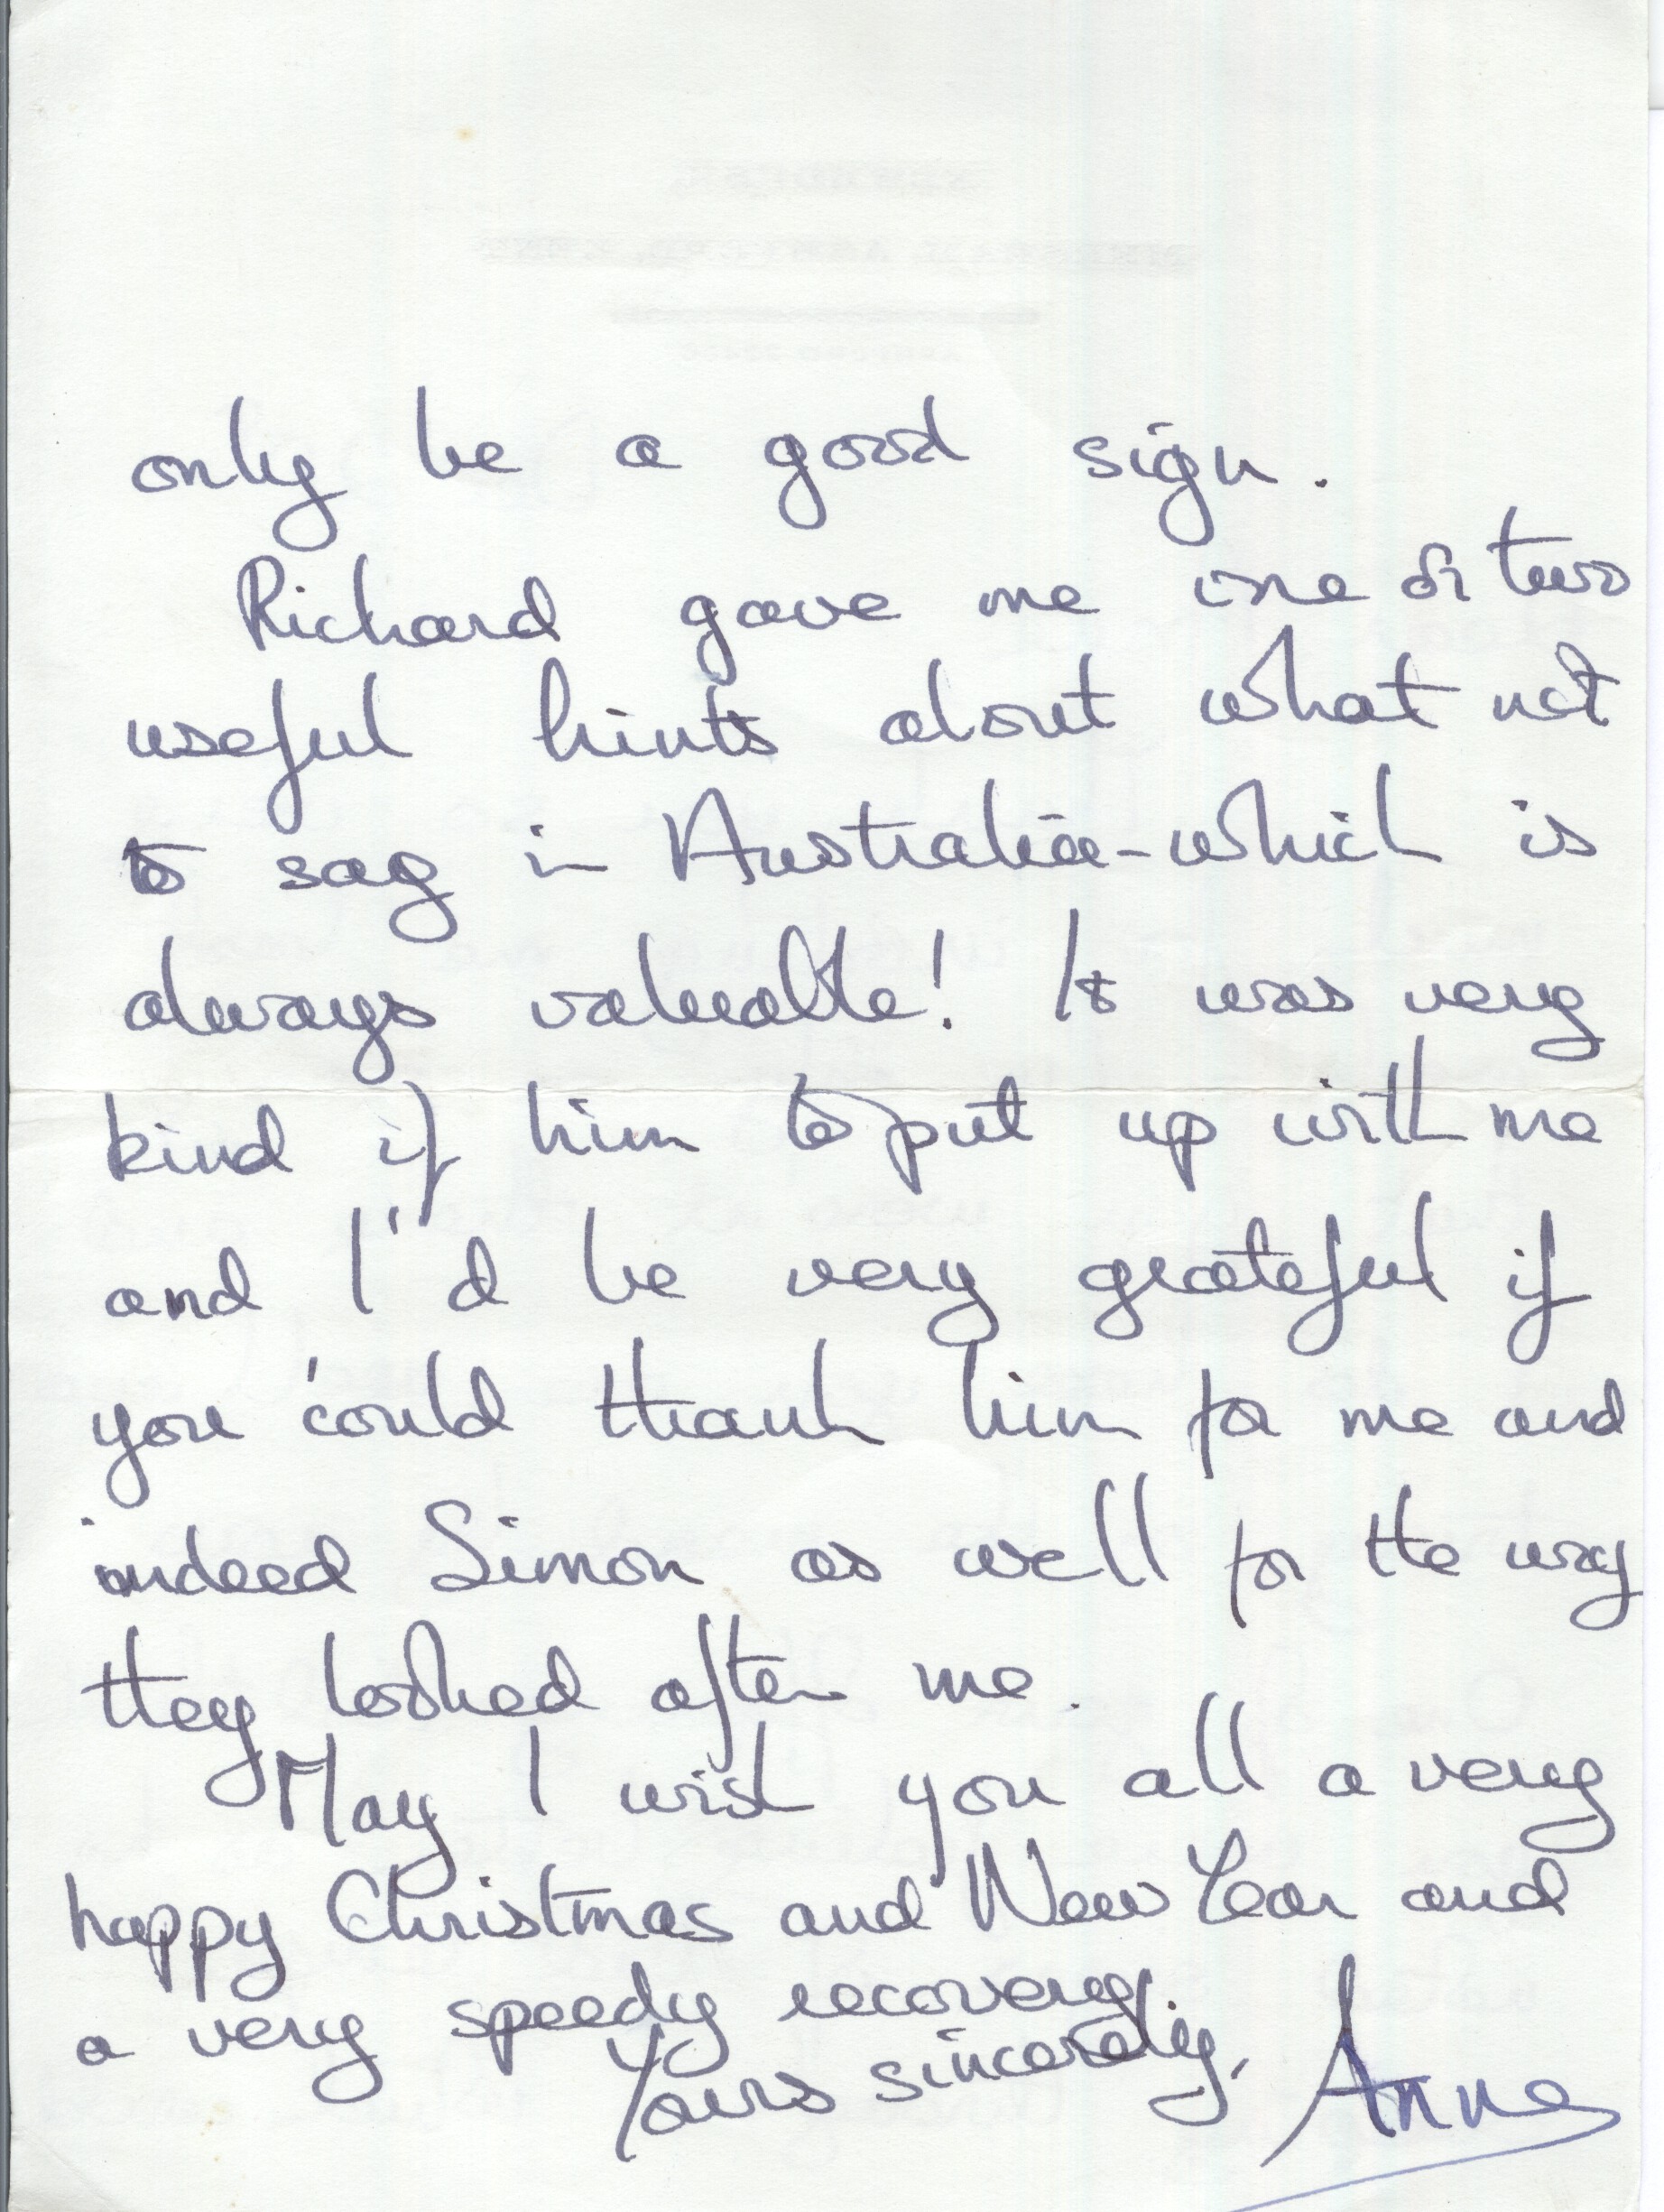 only be a good sign.
Richard gave me one or two
useful hints about what not
to say in Australia - which is
always valuable! It was very
kind of him to put up with me
and I'd be very grateful if
you could thank him for me and
indeed Simon as well for the way
they looked after me.
May I wish you all a very
happy Christmas and New Year and
a very speedy recovery.
Yours sincerely,
Anne